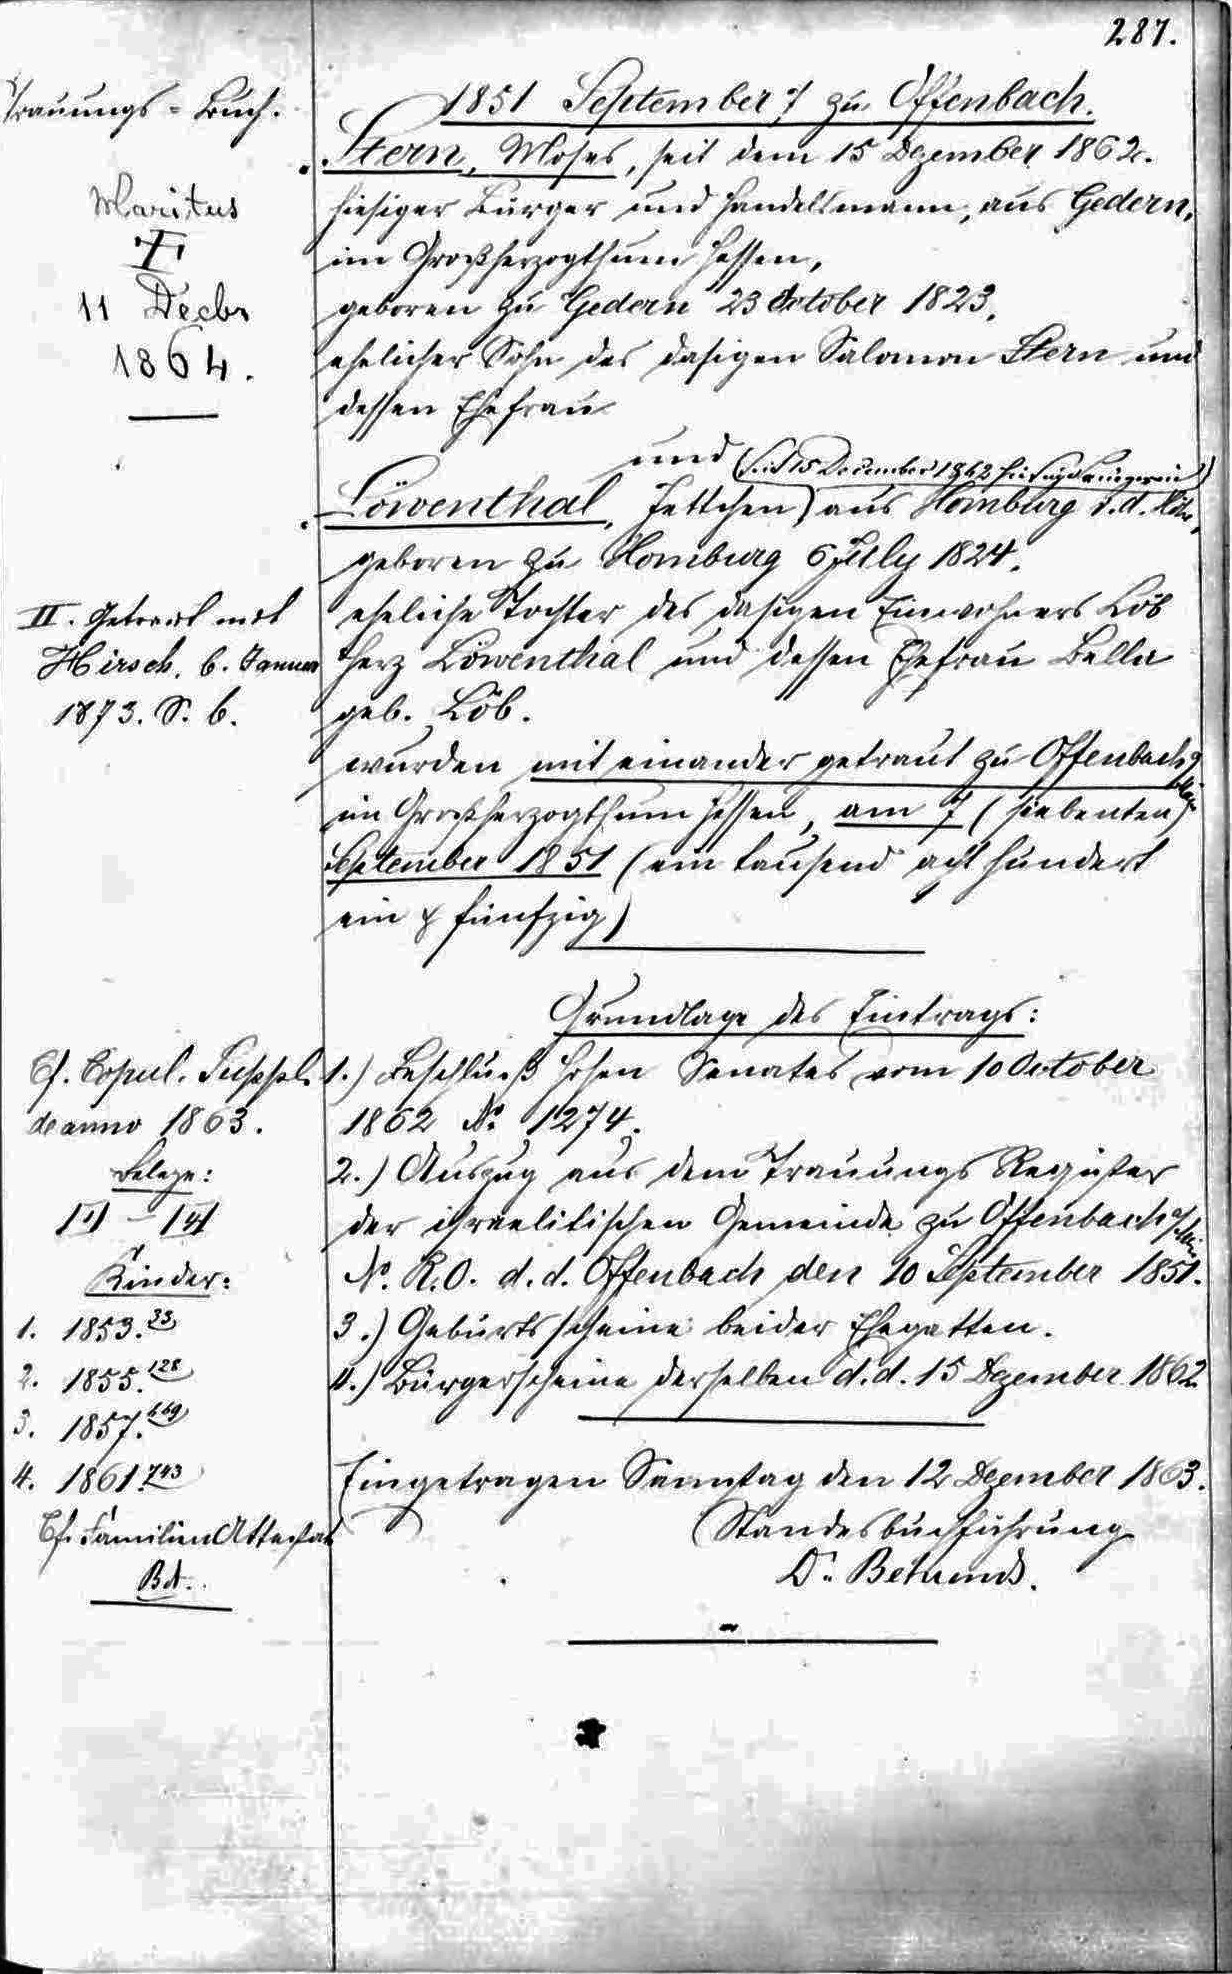 287.
Trauungs-Buch.
1851 September 7 zu Offenbach.
Stern, Moses, seit dem 15 Dezember 1862.
hiesiger Bürger und Handelsmann, aus Gedern,
im Großherzogthum Hessen,
geboren zu Gedern 23 October 1823.
ehelicher Sohn des dasigen Salomon Stern und
dessen Ehefrau
Maritus
†
11 Decbr
1864.
und
(seit 15 December 1862 hiesige Bürgerin)
Löwenthal, Jettchen, aus Homburg v. d. Höhe,
geboren zu Homburg 6 July 1824.
eheliche Tochter des dasigen Einwohners Löb
Herz Löwenthal und dessen Ehefrau Bella
geb. Löb.
wurden mit einander getraut zu Offenbach a/Main
im Großherzogthum Hessen, am 7 (siebenten)
September 1851 (ein tausend acht hundert
ein & fünfzig)
II. Getraut mit
Hirsch, 6. Januar
1873. S. 6.
Grundlage des Eintrags:
1.) Beschluß hohen Senates vom 10 October
1862 No. 1274.
2.) Auszug aus dem Trauungs Register
der israelitischen Gemeinde zu Offenbach a/Main
No. R. O. d. d. Offenbach den 10 September 1851.
3.) Geburtsscheine beider Ehegatten.
4.) Bürgerscheine derselben d. d. 15 Dezember 1862
Eingetragen Samstag den 12 Dezember 1863.
Standesbuchführung
Dr.
Cf. Copul. Suppl.
de anno 1863.
Belege:
Kinder:
1. 1853. 33
2. 1855. 128
3. 1857. 669
4. 1861. 743
Cf. Familien Attestat